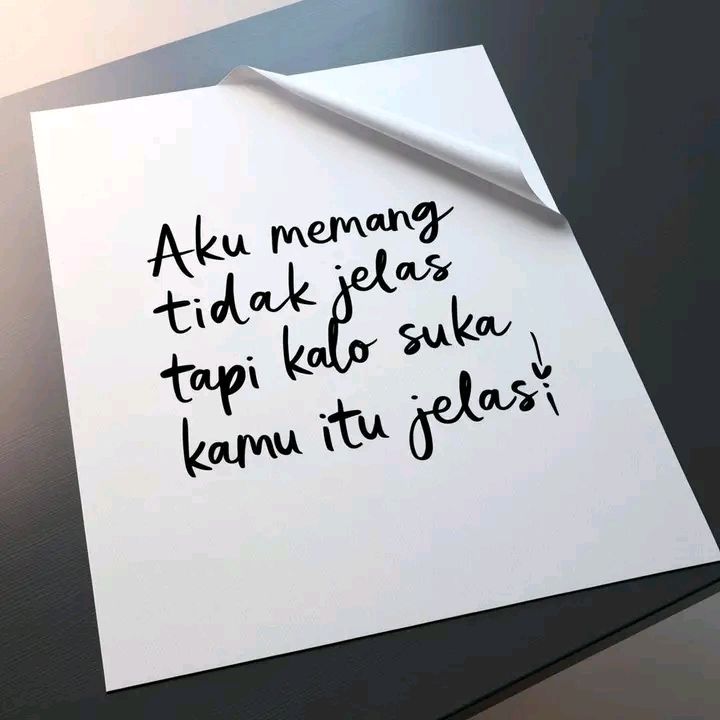 Aku memang
tidak jelas
tapi kalo suka
kamu itu jelas!